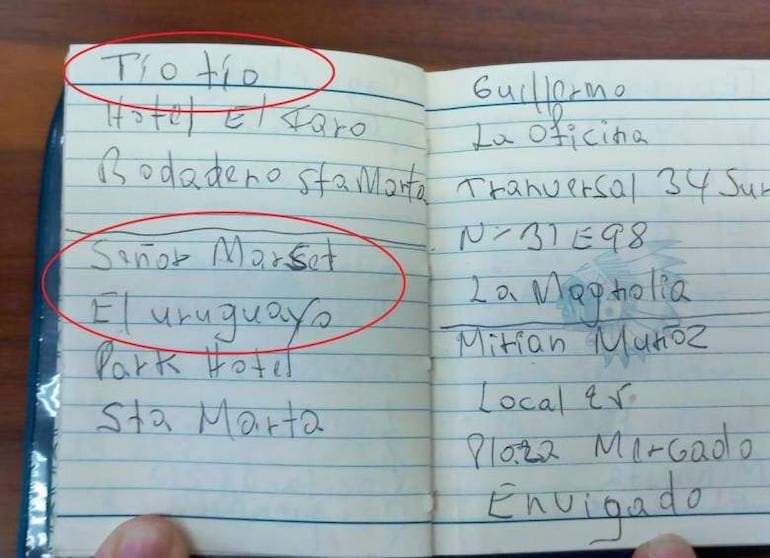 Tio tio
Hotel El Faro
Rodadero Sta Marta
Señor Marset
El uruguayo
Park Hotel
Sta Marta
Guillermo
La Oficina
Tranversal 34 Sur
N- 31 E 98
La Magnolia
Mirian Muñoz
Local
Plaza Mercado
Envigado